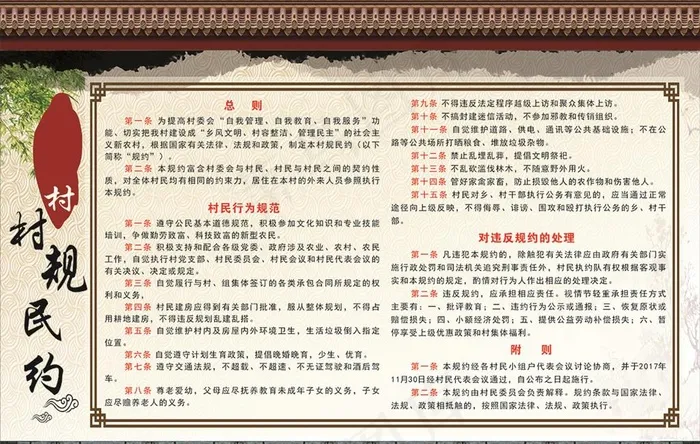 村
村规民约
总 则
第一条 为提高村委会“自我管理、自我教育、自我服务”功
能、切实把我村建设成“乡风文明、村容整洁、管理民主”的社会主
义新农村，根据国家有关法律、法规和政策，制定本村规民约（以下
简称“规约”）。
第二条 本规约富含村委会与村民、村民与村民之间的契约性
质，对全体村民均有相同的约束力，居住在本村的外来人员参照执行
本规约。
村民行为规范
第一条 遵守公民基本道德规范，积极参加文化知识和专业技能
培训，争做勤劳致富、科技致富的新型农民。
第二条 积极支持和配合各级党委、政府涉及农业、农村、农民
工作，自觉执行村党支部、村民委员会、村民会议和村民代表会议的
有关决议、决定或规定。
第三条 自觉履行与村、组集体签订的各类承包合同所规定的权
利和义务，
第四条 村民建房应得到有关部门批准，服从整体规划，不得占
用耕地建房，不得违反规划乱建乱搭。
第五条 自觉维护村内及房屋内外环境卫生，生活垃圾倒入指定
位置。
第六条 自觉遵守计划生育政策，提倡晚婚晚育，少生、优育。
第七条 遵守交通法规，不超载、不超速、不无证驾驶和酒后驾
车。
第八条 尊老爱幼，父母应尽抚养教育未成年子女的义务，子女
应尽赡养老人的义务。
第九条 不得违反法定程序越级上访和聚众集体上访。
第十条 不搞封建迷信活动，不参加邪教和传销组织。
第十一条 自觉维护道路、供电、通讯等公共基础设施；不在公
路等公共场所打晒粮食、堆放垃圾杂物。
第十二条 禁止乱埋乱葬，提倡文明祭祀。
第十三条 不乱砍滥伐林木，不随意野外用火。
第十四条 管好家禽家畜，防止损毁他人的农作物和伤害他人。
第十五条 村民对乡、村干部执行公务有意见的，应当通过正常
途径向上级反映，不得侮辱、诽谤、围攻和殴打执行公务的乡、村干
部。
对违反规约的处理
第一条 凡违犯本规约的，除触犯有关法律由政府有关部门实
施行政处罚和司法机关追究刑事责任外，村民执约队有权根据客观事
实和本规约的规定，酌情对行为人作出相应的处理决定。
第二条 违反规约，应承担相应责任。视情节轻重承担责任方式
主要有：一、批评教育；二、违约行为公示或通报；三、恢复原状或
赔偿损失；四、小额经济处罚；五、提供公益劳动补偿损失；六、暂
停享受上级优惠政策和村集体福利。
附 则
第一条 本规约经各村民小组户代表会议讨论协商，并于2017年
11月30日经村民代表会议通过，自公布之日起施行。
第二条 本规约由村民委员会负责解释。规约条款与国家法律、
法规、政策相抵触的，按照国家法律、法规、政策执行。